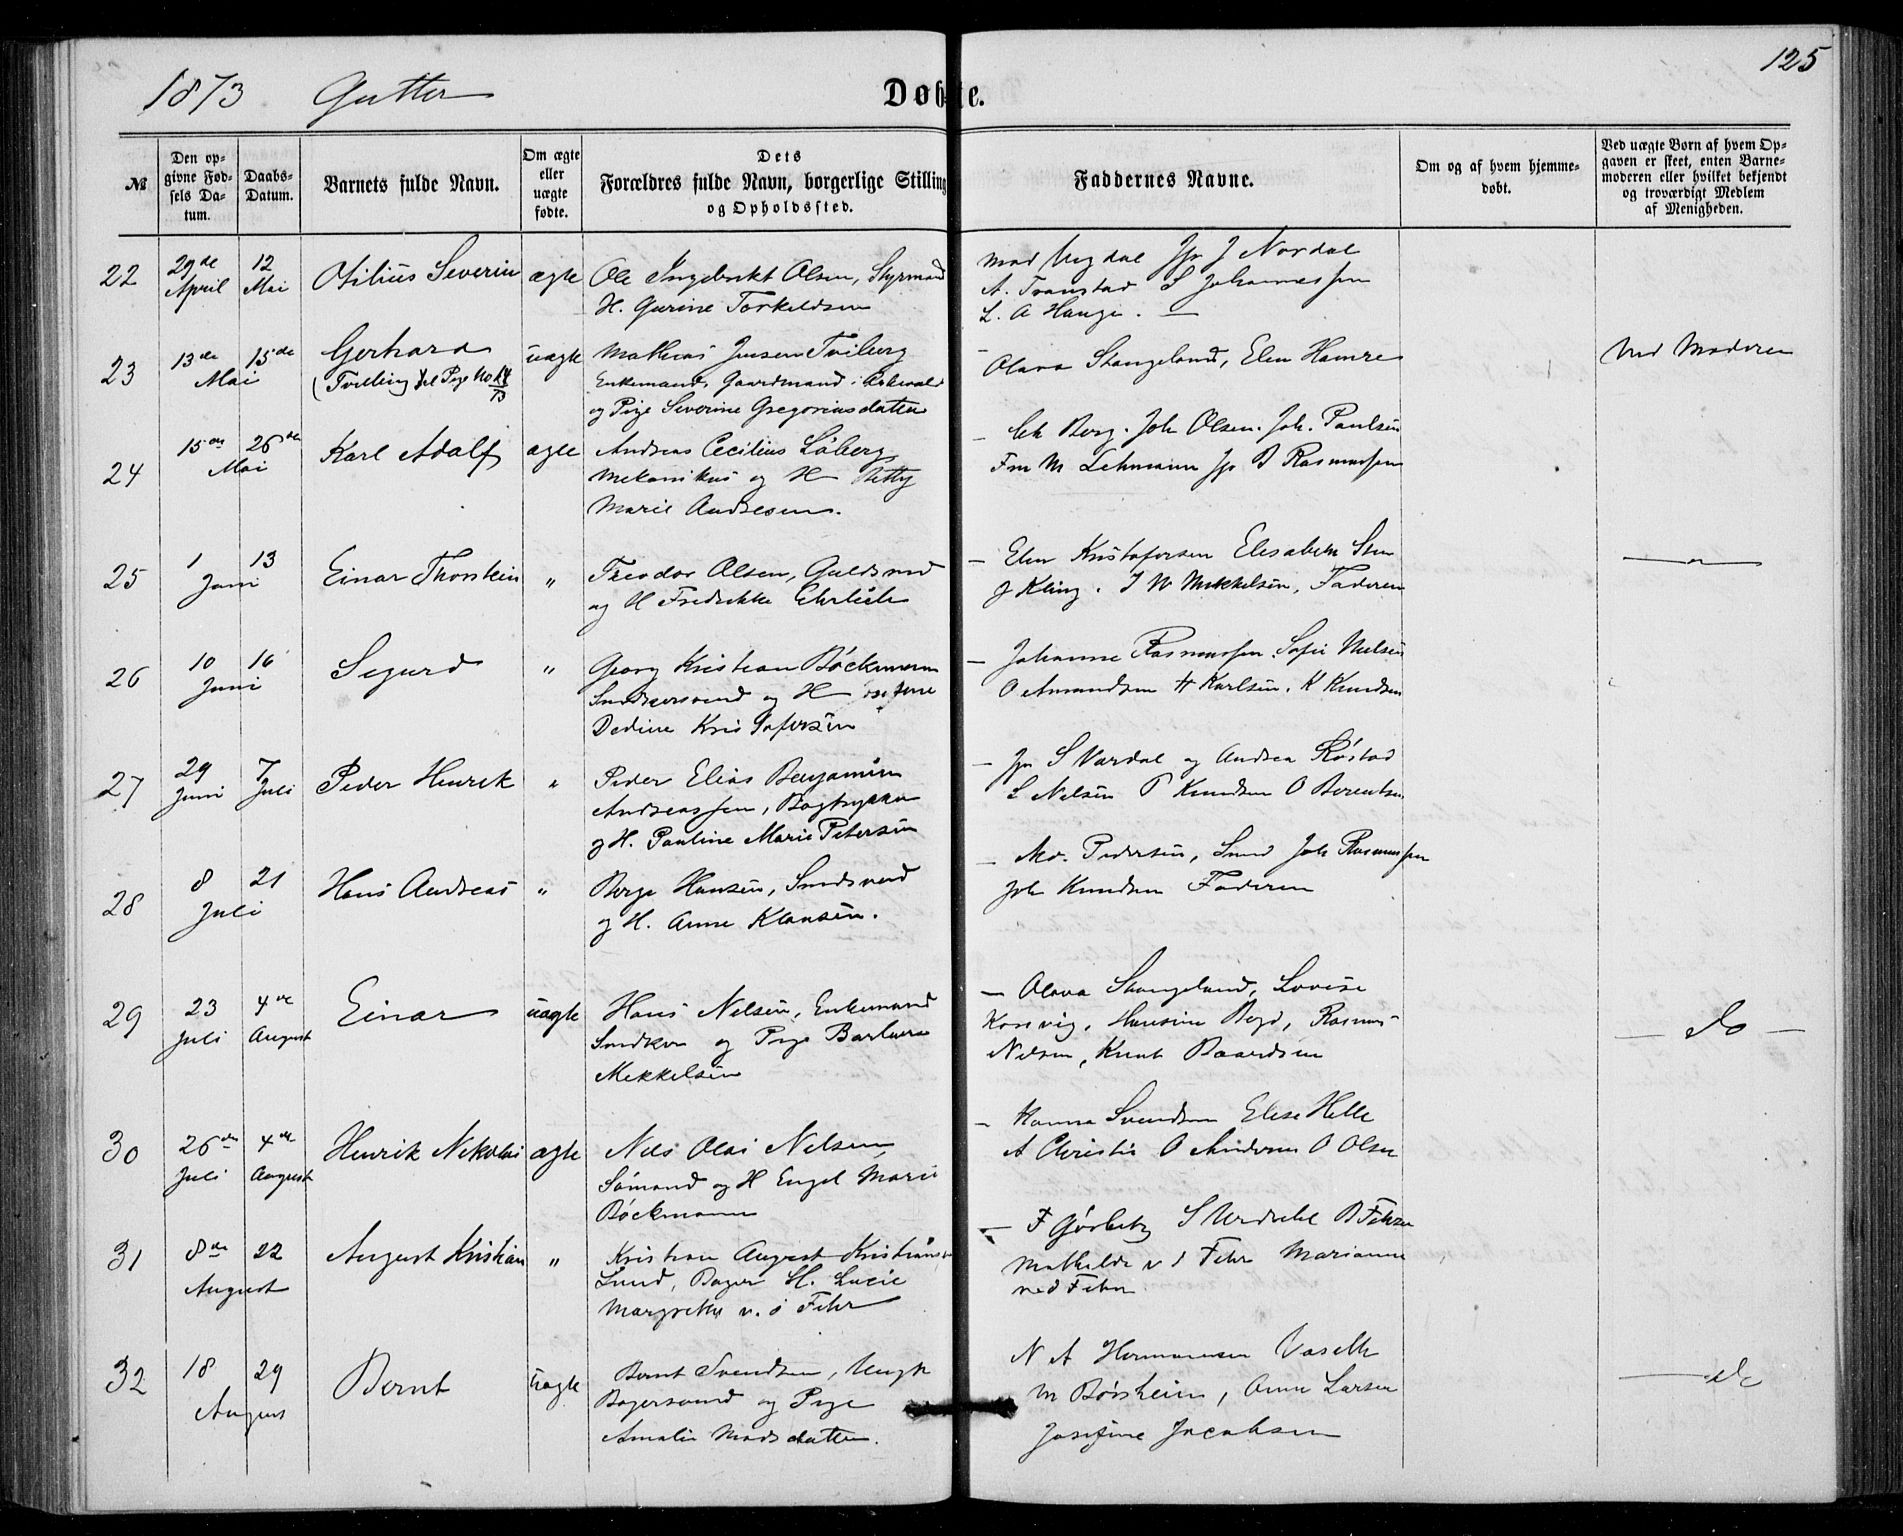 125
1873 Gutter
Døbte.
№
Den opgivne Fødsels Datum.
Daabs-Datum.
Barnets fulde Navn.
Om ægte eller uægte fødte.
Dets Forældres fulde Navn, borgerlige Stilling og Opholdssted.
Faddernes Navne.
Om og af hvem hjemmedøbt.
Ved uægte Børn af hvem Opgaven er skeet, enten Barnemoderen eller hvilket bekjendt og troværdigt Medlem af Menigheden.
22 29de April 12 Mai Otilius Severin ægte Ole Ingebrikt Olsen, Styrmand
H. Gurine Torkeldsen
Mad Jfr J Nordal
A. Transtad S Johannessen
L. A Hauge. —
23 13de 15de Mai Gerhard uægte Mathias Jensen Tviberg
(Tvilling til Pige No 14/73
Enkemand, Gaardmand i
og Pige Severine Gregoriusdatter
— Olava Stangeland, Elen Hamre
Ved Moderen
24 15de 26de Mai Karl Adolf ægte Andreas Cecilius Løberg
Mekanikus og H Jetty
Marie Andresen.
— Berg. Joh Olsen. Joh. Paulsen
Fru M Lehmann Jfr B Rasmussen
25 1 13 Juni Einar Thorstein " Teodor Olsen, Guldsmed
og H Fredrikke Ehrlich
— Elen Kristofersen Elisabeth Sten
J Kling. J W Mikkelsen, Faderen
26 10 16 Juni Sigurd " Georg Kristian Bøckmann
Smedsvend og H Josefine
Dedine Kristofersen
— Johanne Rasmussen Sofie Nielsen
O Amundsen H Karlsen. K Knudsen
27 29 Juni 7 Juli Peder Henrik " Peder Elias Benjamin
Andreassen, Bogtrykker
og H. Pauline Marie Petersen
— Jfr S Vardal og Andrea Røstad
L Nelsen P Knudsen O Berentsen
28 8 21 Juli Hans Andreas " Berge Hansen, Smedsvend
og H. Anne Klausen.
— Md. Pedersen, Lund Joh Rasmussen
Joh Knudsen Faderen
29 23 Juli 4de August Einar uægte Hans Nelsen, Enkemand
Snedker og Pige Barbara
Mekkelsen
— Olava Stangeland, Lovise
Korsvig, Hansine Boyd, Rasmus
Nelsen, Knut Baardsen
— do —
30 26de Juli 4de August Henrik Nikolai ægte Nils Olai Nelsen
Sømand og H Engel Marie
Bøckmann
— Hanna Svendsen Elise Helle
A Christie O Andersen O Olsen
31 8de 22 August August Kristian " Kristian August Kristiansen
Lund, Bager H. Lucie
Margrethe v. d Fehr
— F Gørbitz S B Fehr
Mathilde v d Fehr Marianne
v d Fehr
32 18 29 August Bernt uægte Bernt Svendsen, Ungk
Bagersvend og Pige
Amalie Madsdatter.
N A Hermansen
M Børsheim, Anne Larsen
Josefine Jacobsen
— do